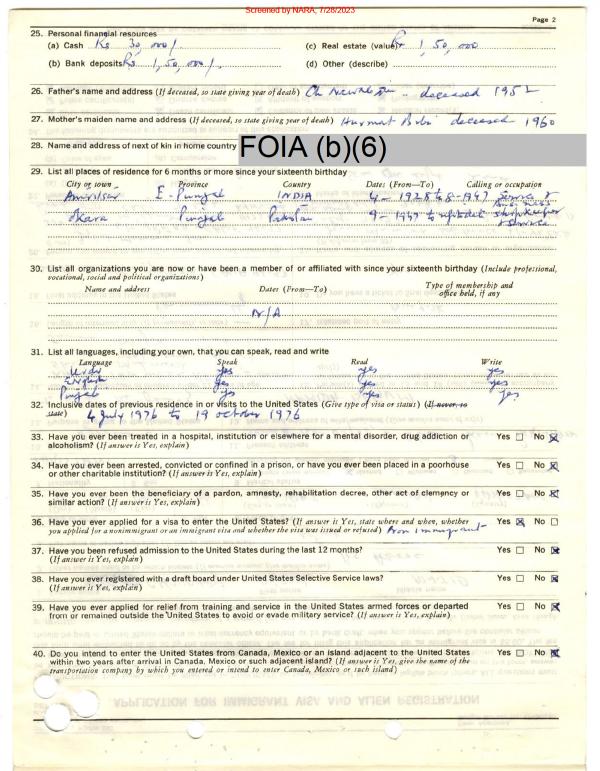 Screened by NARA, 7/28/2023
Page 2
25. Personal financial resources
(a) Cash Rs 30,000/. (c) Real estate (value) Rs 1,50,000
(b) Bank deposits Rs 1,50,000/. (d) Other (describe)
26. Father's name and address (If deceased, so state giving year of death) deceased 1952
27. Mother's maiden name and address (If deceased, so state giving year of death) Hurmat Bibi deceased 1960
28. Name and address of next of kin in home country FOIA (b)(6)
29. List all places of residence for 6 months or more since your sixteenth birthday
City or town Province Country Dates (From—To) Calling or occupation
Amritsar E-Punjab INDIA 4-1928 to 8-1947 Service &
Business
Okara Punjab Pakistan 9-1947 to uptodate shopkeeper
& Service
30. List all organizations you are now or have been a member of or affiliated with since your sixteenth birthday (Include professional,
vocational, social and political organizations)
Name and address Dates (From—To) Type of membership and
office held, if any
N/A
31. List all languages, including your own, that you can speak, read and write
Language Speak Read Write
Urdu yes yes yes
English yes yes yes
Punjabi yes yes yes
32. Inclusive dates of previous residence in or visits to the United States (Give type of visa or status) (If never, so
state) 4 July 1976 to 19 october 1976
33. Have you ever been treated in a hospital, institution or elsewhere for a mental disorder, drug addiction or Yes ☐ No ☒
alcoholism? (If answer is Yes, explain)
34. Have you ever been arrested, convicted or confined in a prison, or have you ever been placed in a poorhouse Yes ☐ No ☒
or other charitable institution? (If answer is Yes, explain)
35. Have you ever been the beneficiary of a pardon, amnesty, rehabilitation decree, other act of clemency or Yes ☐ No ☒
similar action? (If answer is Yes, explain)
36. Have you ever applied for a visa to enter the United States? (If answer is Yes, state where and when, whether Yes ☒ No ☐
you applied for a nonimmigrant or an immigrant visa and whether the visa was issued or refused) Non immigrant
37. Have you been refused admission to the United States during the last 12 months? Yes ☐ No ☒
(If answer is Yes, explain)
38. Have you ever registered with a draft board under United States Selective Service laws? Yes ☐ No ☒
(If answer is Yes, explain)
39. Have you ever applied for relief from training and service in the United States armed forces or departed Yes ☐ No ☒
from or remained outside the United States to avoid or evade military service? (If answer is Yes, explain)
40. Do you intend to enter the United States from Canada, Mexico or an island adjacent to the United States Yes ☐ No ☒
within two years after arrival in Canada, Mexico or such adjacent island? (If answer is Yes, give the name of the
transportation company by which you entered or intend to enter Canada, Mexico or such island)
APPLICATION FOR IMMIGRANT VISA AND ALIEN REGISTRATION